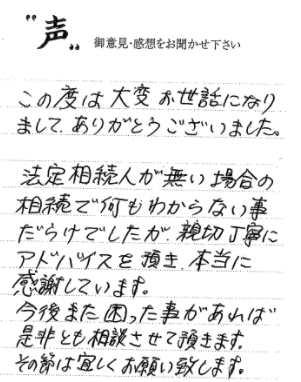 "声"
御意見･感想をお聞かせ下さい
この度は大変お世話になり
まして、ありがとうございました。
法定相続人が無い場合の
相続で何もわからない事
だらけでしたが、親切丁寧に
アドバイスを頂き、本当に
感謝しています。
今後また困った事があれば
是非とも相談させて頂きます。
その節は宜しくお願い致します。